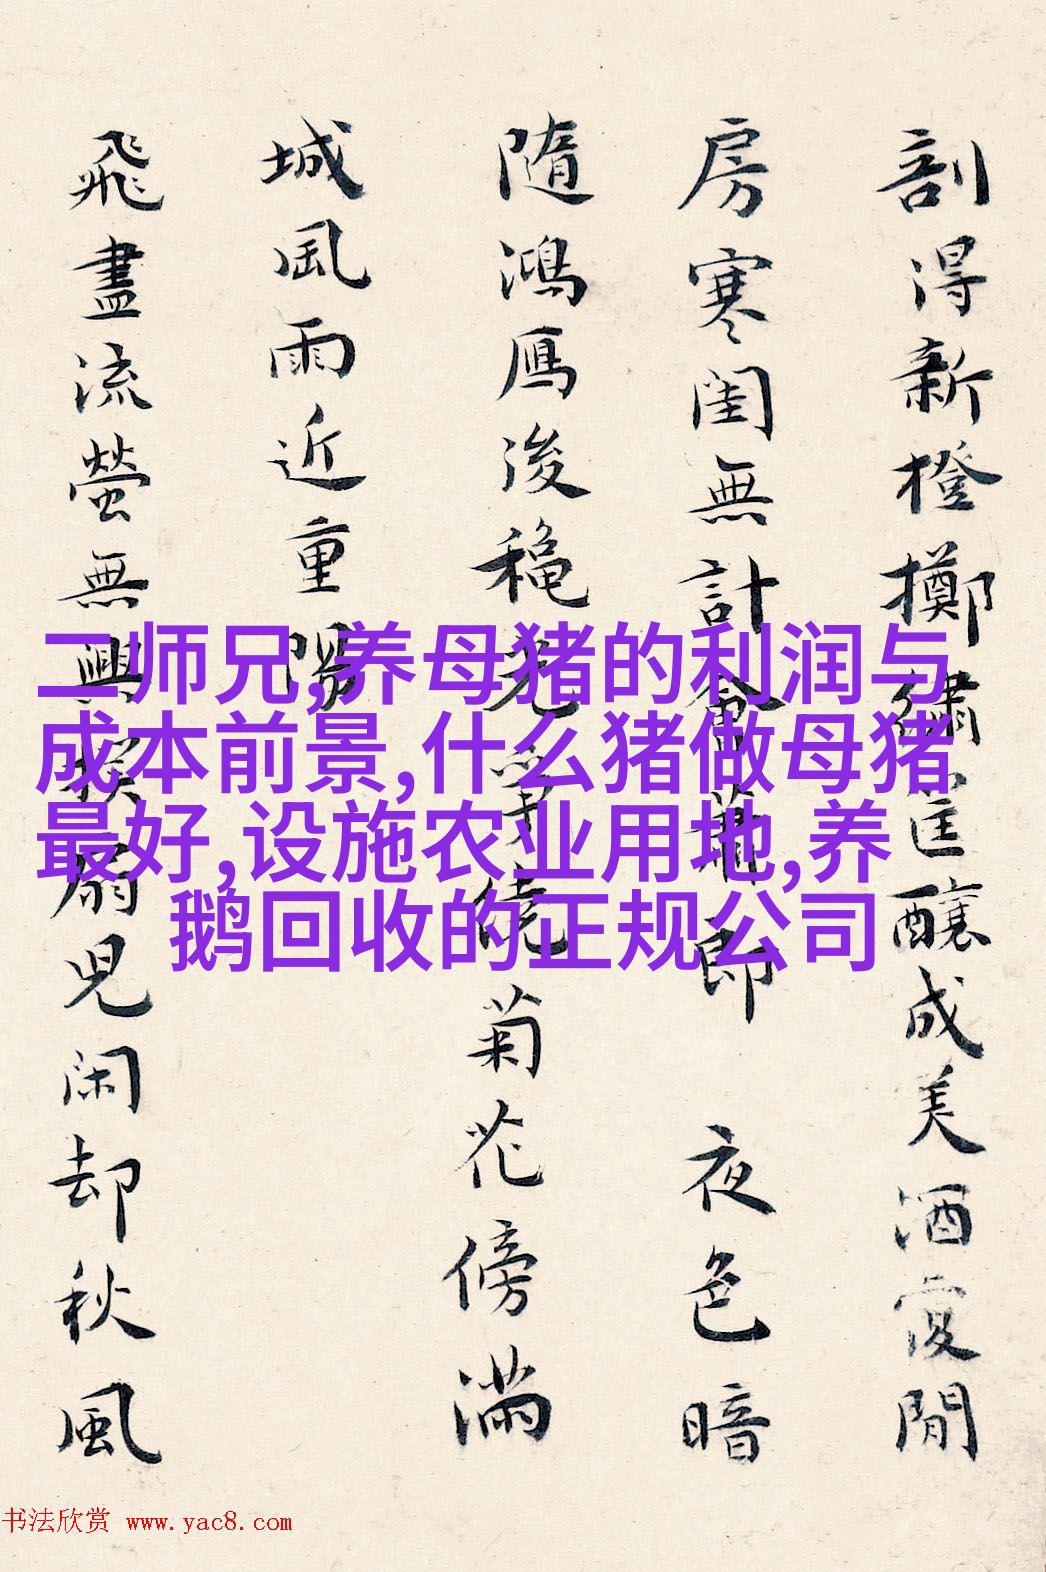 剖得新橙擲繡匡釀成美酒閒
房寒閨無計會蕭郎 夜色暗
隨鴻鴈後穐老繞菊花傍滿
城風雨近重陽
飛盡流螢無興扇兒閑却秋風
二师兄,养母猪的利润与
成本前景,什么猪做母猪
最好,设施农业用地,养
鹅回收的正规公司
书法欣赏 www.yac8.com